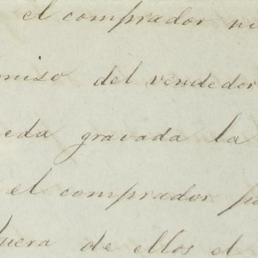 el comprador ni
miso del vendedor
eda gravada la
el comprador pa
uera de ellos el